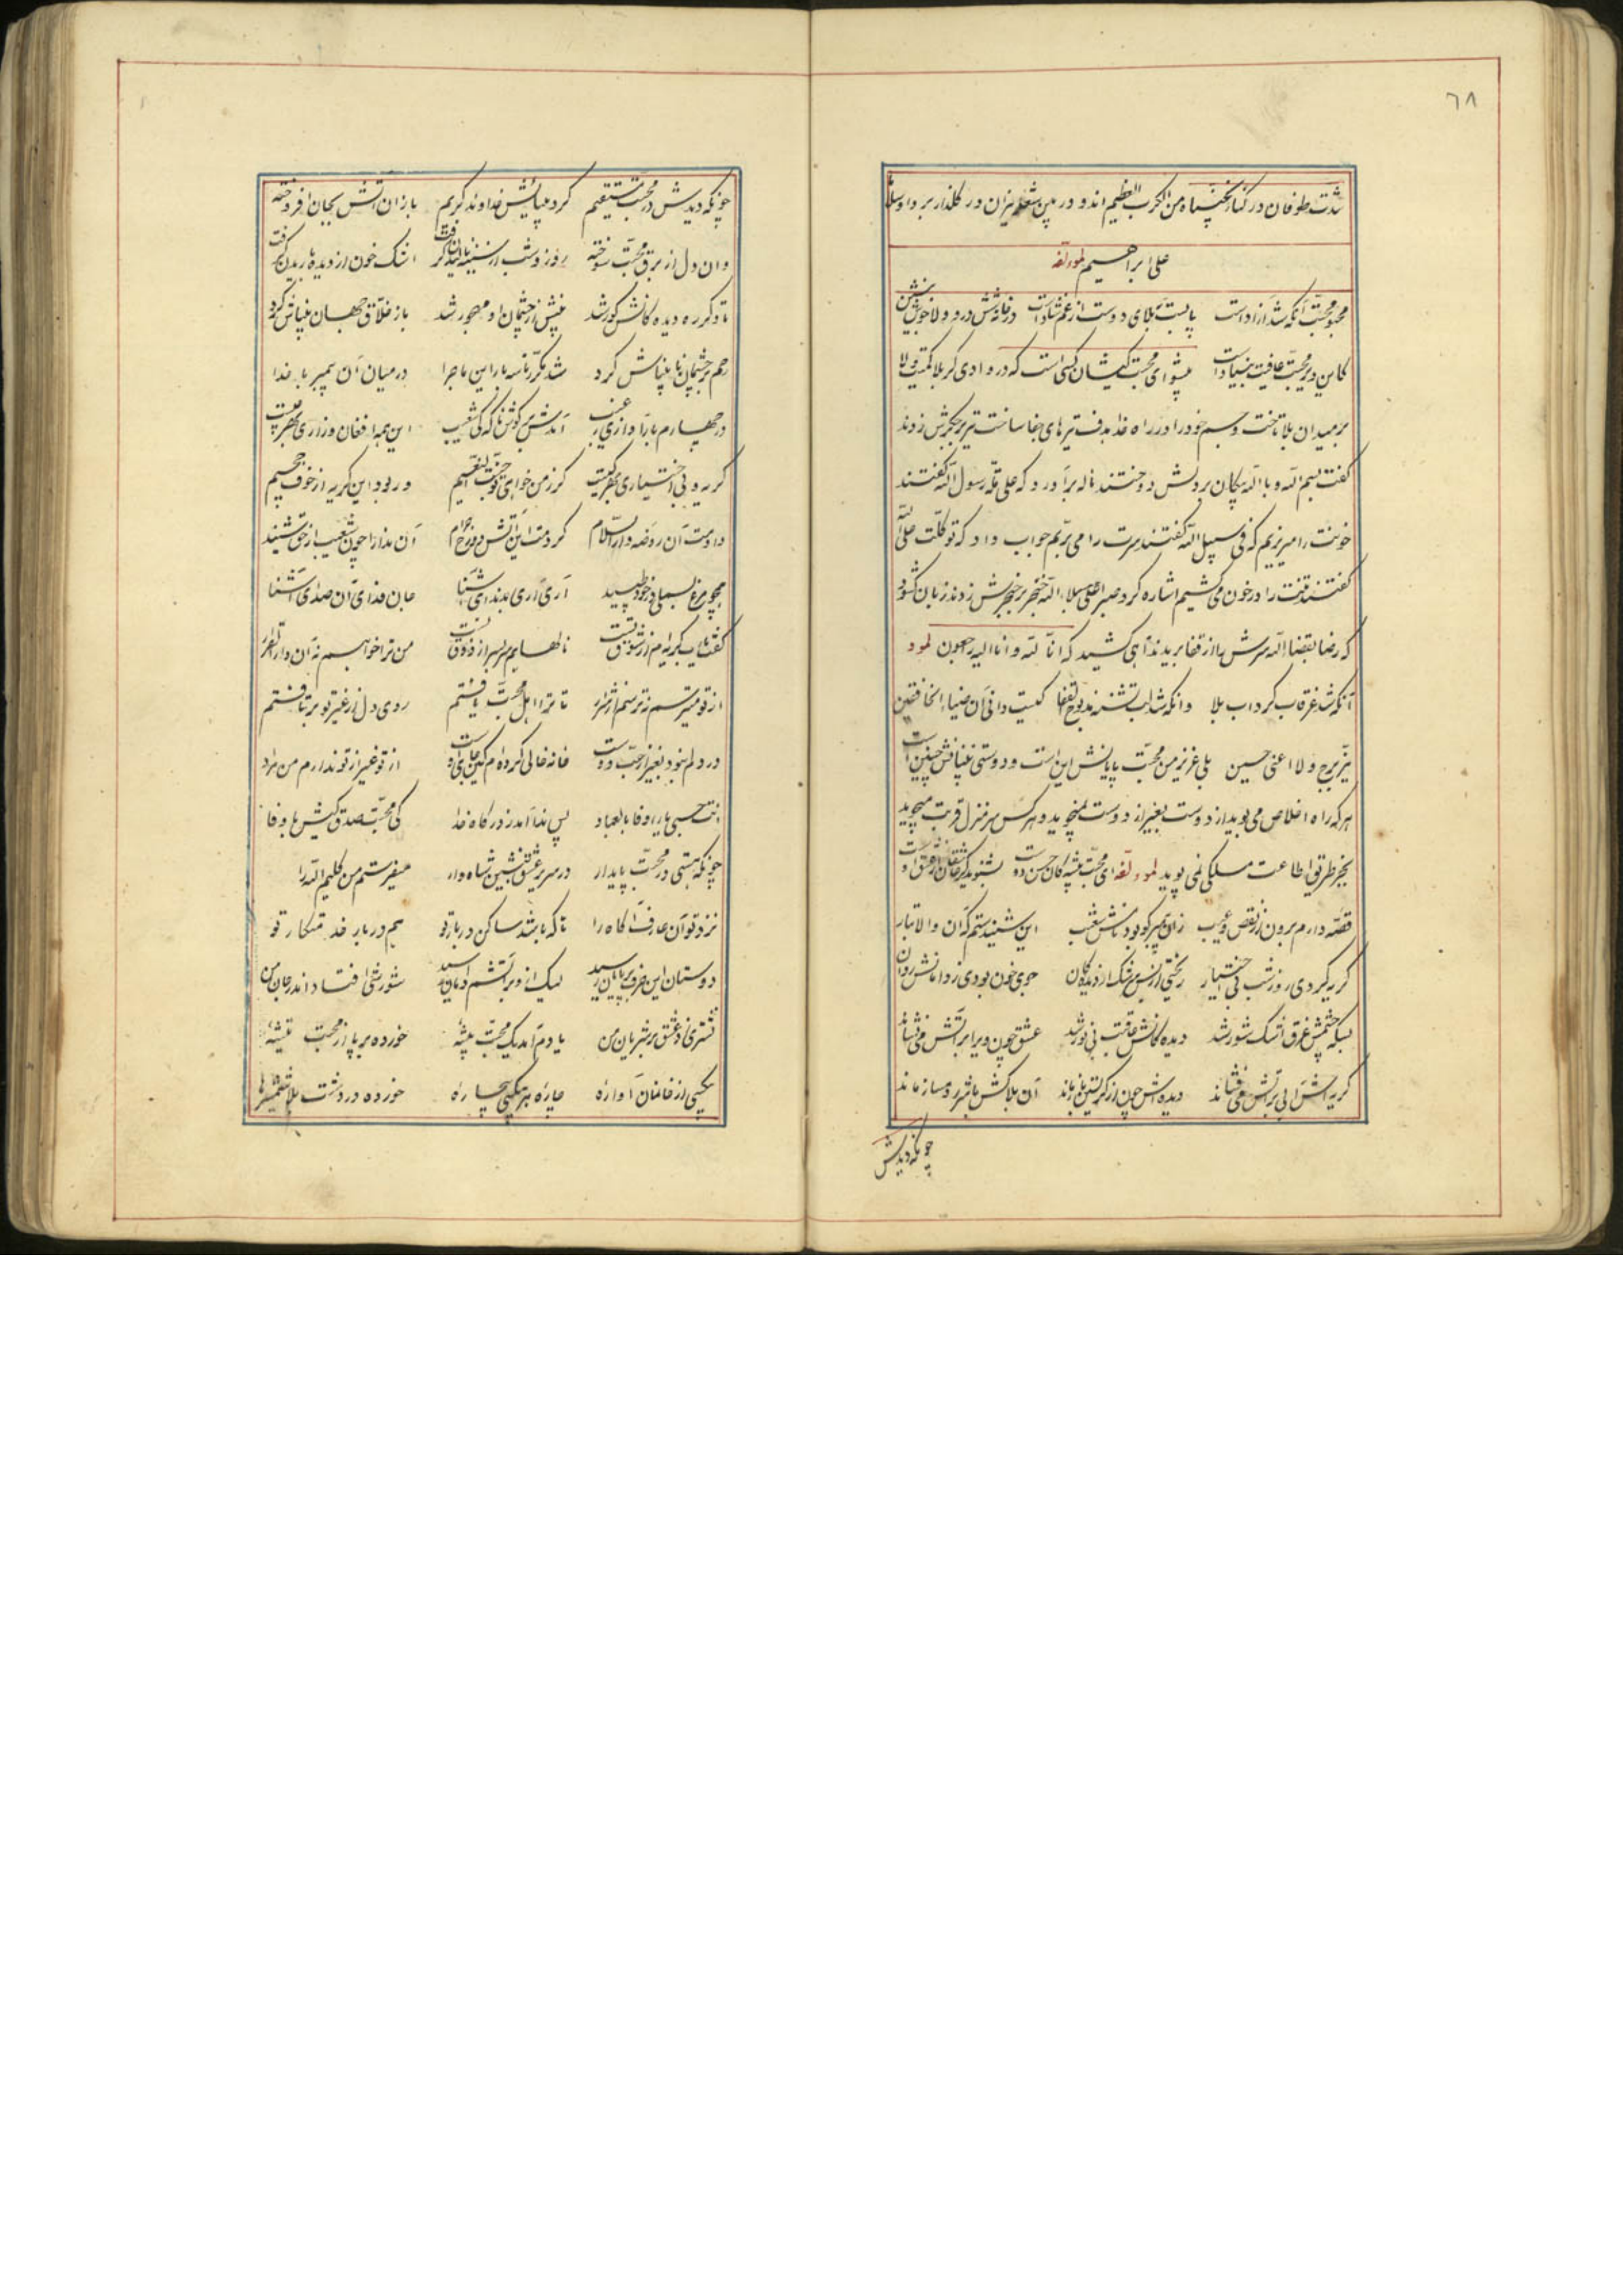 ٦٨
شدت طوفان در کنار نجیناه من الکرب العظیم اند و در بین شعله نیزان در گلذار بردا وسلاما
علی ابراهیم لمولفه
محبوب محبت آنکه شد آزاد است پا بست بلای دوست از غم شاد است در خانه درد و ولا خوش بنشین
کاین دیر محبت عافیت بنیاد است پیشوای محبت کیشان کسی است که در وادی کربلا
بر میدان بلا تاخت و جسم خود را در راه خدا هدف تیرهای جفا ساخت تیر بر جگرش زدند
گفت بسم الله و بالله پیکان بر دلش دوختند ناله برآورد که علی ملة رسول الله گفتند
خونت را میریزیم که فی سبیل الله گفتند سرت را می بریم جواب داد که توکلت علی الله
گفتند تنت را در خون می کشیم اشاره کرد صبرا علی بلاء الله خنجر بر حنجرش زدند زبان گشود
که رضا بقضاء الله سرش را از قفا بریدند آهی کشید که انا لله و انا الیه راجعون لمولفه
آنکه شد غرقاب گرداب بلا وانکه شد لب تشنه مذبوح القفا کیست دانی آن ضیاء الخافقین
نیر برج ولا اعنی حسین بلی عزیز من محبت پایانش این است و دوستی چنین است
هر که راه اخلاص می پوید از دوست بغیر از دوست نمیجوید و هر کس سر منزل قربت میجوید
بجز طریق اطاعت مسلکی نمی پوید لمولفه ای محبت پیشه گان حسن دوست بشنوید
قصه دارم برون از نقص و عیب زان پیمبر کو بود نامش شعیب این شنیدستم که آن والا تبار
گریه کردی روز و شب بی اختیار ریختی از بس سرشک از دیدگان جوی خون بودی ز دامانش روان
بسکه چشمش غرق اشک شور شد دیده گانش عاقبت بی نور شد عشق چون ویرا بر آتش می نشاند
گریه اش آبی بر آتش می فشاند دیده اش چون از گریستن باز ماند آن بلاکش
چونکه دیدش
چونکه دیدش در محبت مستقیم کرد بینائیش خداوند کریم باز آن آتش بجان افروخته
وان دل از برق محبت سوخته روز و شب از سینه نالیدن گرفت اشک خون از دیده باریدن گرفت
تا دگر ره دیده گانش کور شد بینش از چشمان او مهجور شد باز خلاق جهان بیناش کرد
رحم بر چشمان نابیناش کرد شد مکرر تا سه بار این ماجرا در میان آن پیمبر با خدا
در چهارم بار آوازی ز غیب آمدش در گوش ناگه کی شعیب این همه افغان و زاری بهر چیست
گریه و بی اختیاری بهر کیست گر ز من خواهی تو جنات نعیم ور بود این گریه از خوف جحیم
دادمت آن روضه دار السلام کردمت این آتش دوزخ حرام آن ندا را چون شعیب از حق شنید
همچو مرغ بسمل در خون طپید آری آری بندهای آشنا جان فدای آن صدای آشنا
گفت یا رب گریه ام از شوق تست نالهایم سر بسر از ذوق تست من ترا خواهم نه آن دار القرار
از تو میترسم نه ترسم از شرار تا ترا اهل محبت یافتم روی دل از غیر تو برتافتم
در دلم نبود بغیر از حب دوست خانه خالی کرده ام کین جای اوست از تو غیر از تو ندارم من مراد
انت حسبی یا رؤفا بالعباد پس ندا آمد ز درگاه خدا کی محبت صدق کیش با وفا
چونکه هستی در محبت پایدار در سریر عشق بنشین شاه وار میفرستم من کلیم الله را
نزد تو آن عارف آگاه را تا که باشد ساکن دربار تو هم در بار خدمتکار تو
دوستان این حرف بر پایان رسید لیک از وی بر آتشم دامان رسید شورشی افتاد اندر جان من
نشتری زد عشق بر شریان من یادم آمد یک محبت پیشه خورده بر پا از محبت تیشه
بیکسی از خانمان آواره چاره هر بیکسی بیچاره خورده در دشت بلا شمشیرها